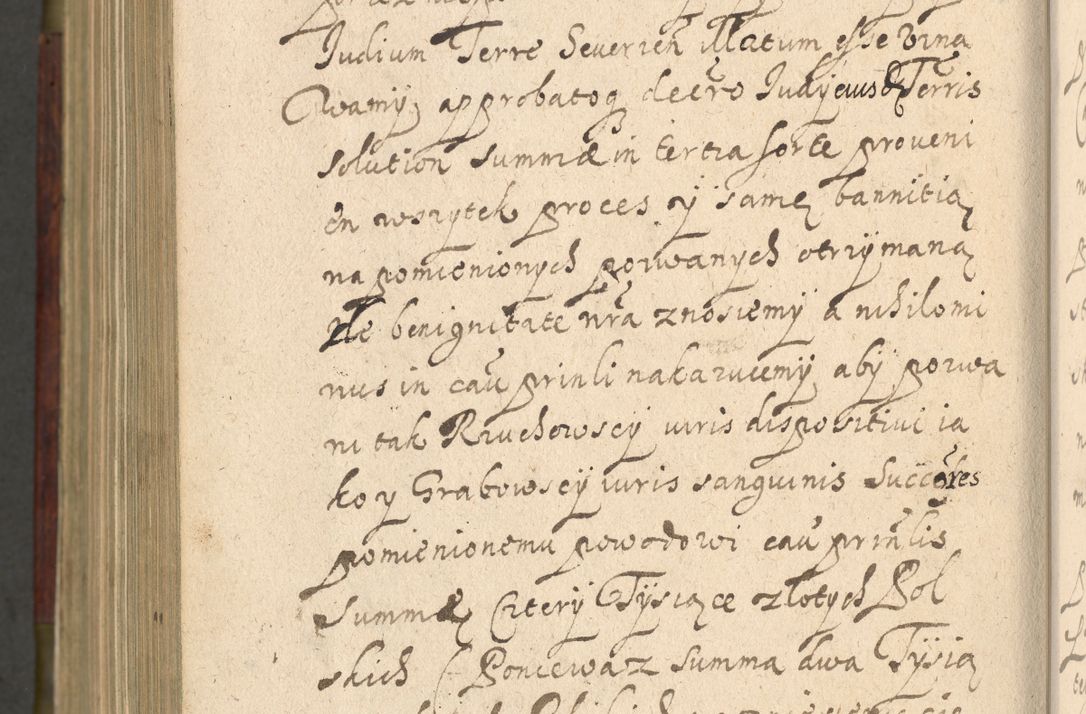 Judium Terre Severien illatum esse vzna
wamy, approbatoq decro Judy eiusd Terris
solution summæ in tertia sorte proveni
en wszytek proces y samę bannitią
na pomienionych pozwanych otrzymaną
de benignitate nra znosiemy a nihilomi
nus in cau prinli nakazuiemy aby pozwa
ni tak Rzuchowscy iuris dispositivi ia
ko y Grabowscy iuris sanguinis Succores
pomienionemu powodowi cau prinlis
summę Cztery Tysiące złotych Pol
skich (Poniewaz summa dwa Tysią